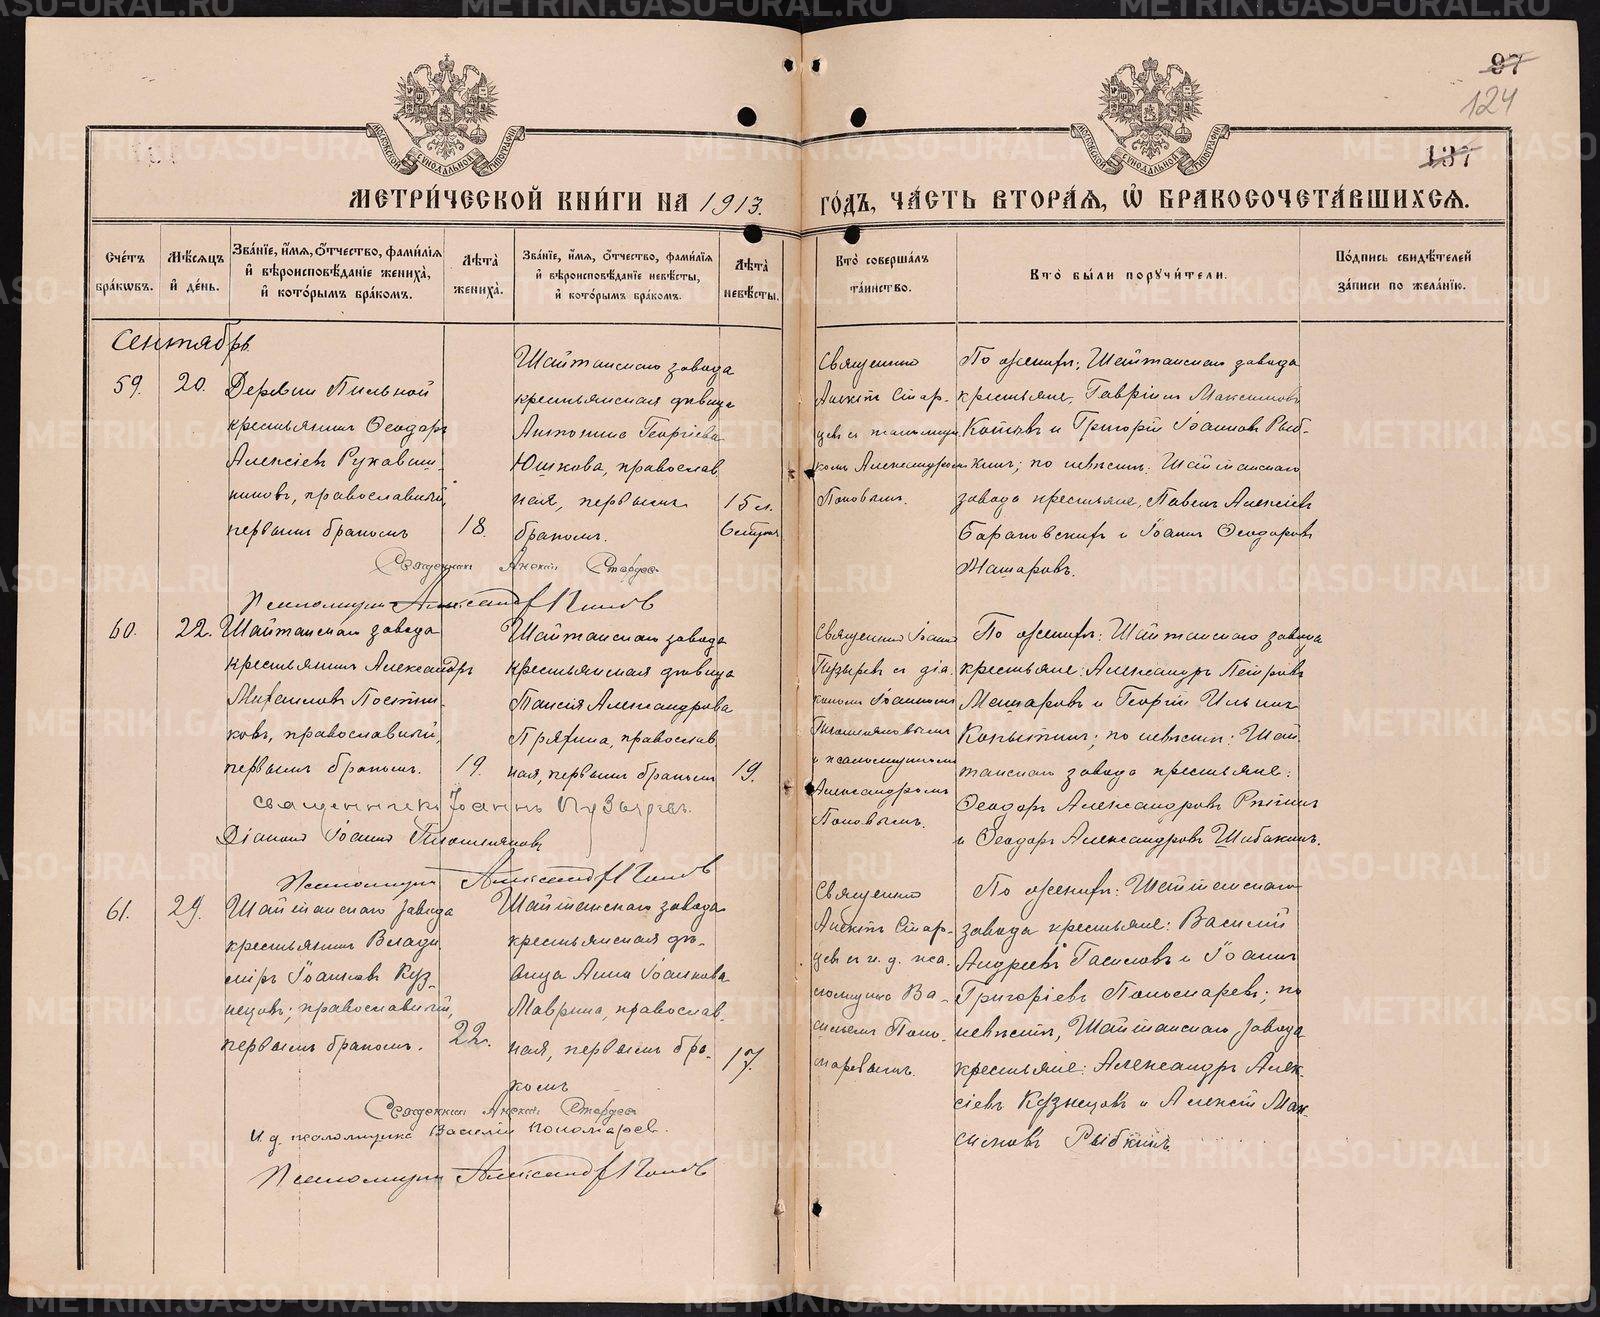 97
124
137
МОСКОВСКОЙ СѴНОДАЛЬНОЙ ТИПОГРАФІИ
МОСКОВСКОЙ СѴНОДАЛЬНОЙ ТИПОГРАФІИ
МЕТРИ́ЧЕСКОЙ КНИ́ГИ НА 1913. ГО́ДЪ, ЧА́СТЬ ВТОРА́Ѧ, Ѡ҆ БРАКОСОЧЕТА́ВШИХСѦ.
Сче́тъ бра́кωвъ.
Мѣ́сѧцъ и҆ де́нь.
Зва́нїе, и҆́мѧ, ѻ҆́тчество, фами́лїѧ и҆ вѣроисповѣ́данїе жениха̀, и҆ кото́рымъ бра́комъ.
Лѣ́та̀ жениха̀.
Зва́нїе, и҆́мѧ, ѻ҆́тчество, фами́лїѧ и҆ вѣроисповѣ́данїе невѣ́сты, и҆ кото́рымъ бра́комъ.
Лѣ́та̀ невѣ́сты.
Кто̀ соверша́лъ та́инство.
Кто̀ бы́ли порꙋчи́тели.
По́дпись свидѣ́телей за́писи по жела́нїю.
Сентябрь
59.
20.
Деревни Пильной
крестьянинъ Ѳеодоръ
Алексіевъ Рукавиш-
никовъ, православный,
первымъ бракомъ
18.
Шайтанскаго завода
крестьянская дѣвица
Антонина Георгіева
Юшкова, православ
ная, первымъ
бракомъ.
15 л.
Священникъ
Алексій Стар-
цевъ съ псаломщи
комъ Александромъ
Поповымъ.
По женихѣ: Шайтанскаго завода
крестьяне, Гавріилъ Максимовъ
Котовъ и Григорій Іоанновъ Рыб-
кинъ; по невѣстѣ: Шайтанскаго
завода крестьяне, Павелъ Алексіевъ
Барановскихъ и Іоаннъ Ѳеодоровъ
Машаровъ.
Священникъ Алексій Старцев
Псаломщикъ Александръ Поповъ
60.
22.
Шайтанскаго завода
крестьянинъ Александръ
Михаиловъ Постни-
ковъ, православный,
первымъ бракомъ.
19.
Шайтанскаго завода
крестьянская дѣвица
Таисія Александрова
Пряхина, православ
ная, первымъ бракомъ
19.
Священникъ Іоаннъ
Пузыревъ съ діа
кономъ Іоанномъ
и псаломщикомъ
Александромъ
Поповымъ.
По женихѣ: Шайтанскаго завода
крестьяне: Александръ Петровъ
Машаровъ и Георгій Ильинъ
Копытинъ; по невѣстѣ: Шай
танскаго завода крестьяне:
Ѳеодоръ Александровъ
и Ѳеодоръ Александровъ Шибакинъ.
Священникъ Іоаннъ Пузыревъ.
Діаконъ Іоаннъ
Псаломщикъ Александръ Поповъ
61.
29.
Шайтанскаго завода
крестьянинъ Влади
міръ Іоанновъ Куз-
нецовъ; православный,
первымъ бракомъ.
22.
Шайтанскаго завода
крестьянская дѣ-
вица Анна Іоаннова
Маврина, православ-
ная, первымъ бра-
комъ
17.
Священникъ
Алексій Стар-
цевъ съ и. д. пса-
ломщика Ва-
сильемъ Поно-
маревымъ.
По женихѣ: Шайтанскаго
завода крестьяне: Василій
Андреевъ Гасиловъ и Іоаннъ
Григоріевъ Пономаревъ; по
невѣстѣ, Шайтанскаго завода
крестьяне: Александръ Алек-
сіевъ Кузнецовъ и Алексій Мак-
симовъ Рыбкинъ.
Священникъ Алексій Старцев
И. д. псаломщика Василій Пономарев.
Псаломщикъ Александръ Поповъ
METRIKI.GASO-URAL.RU